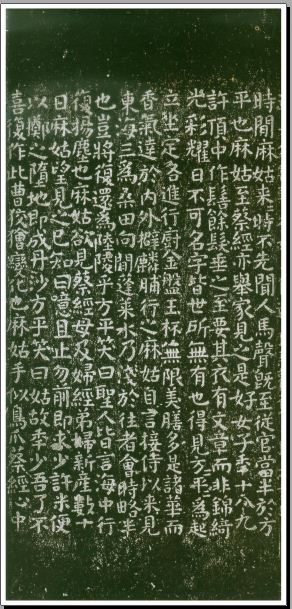 時間麻姑来〻時不先聞人馬聲既至從官當半於方
平也麻姑至蔡經亦舉家見之是好女子年十八九
許頂中作髻餘髮垂之至要其衣有文章而非錦綺
光彩耀日不可名字皆世所無有也得見方〻平〻為起
立坐定各進行厨金盤玉杯無限美膳多是諸華而
香氣達於内外擗麟脯行之麻姑自言接待以来見
東海三為桑田向間蓬萊水乃淺於往者會時略半
也豈將復還為陸陵乎方平笑曰聖人皆言海中行
復揚塵也麻姑欲見蔡經母及婦經弟婦新產數十
日麻姑望見之已知曰噫且止勿前即求少許米便
以擲之墮地即成丹沙方平笑曰姑故年少吾了不
喜復作此曹狡獪變化也麻姑手似鳥爪蔡經心中